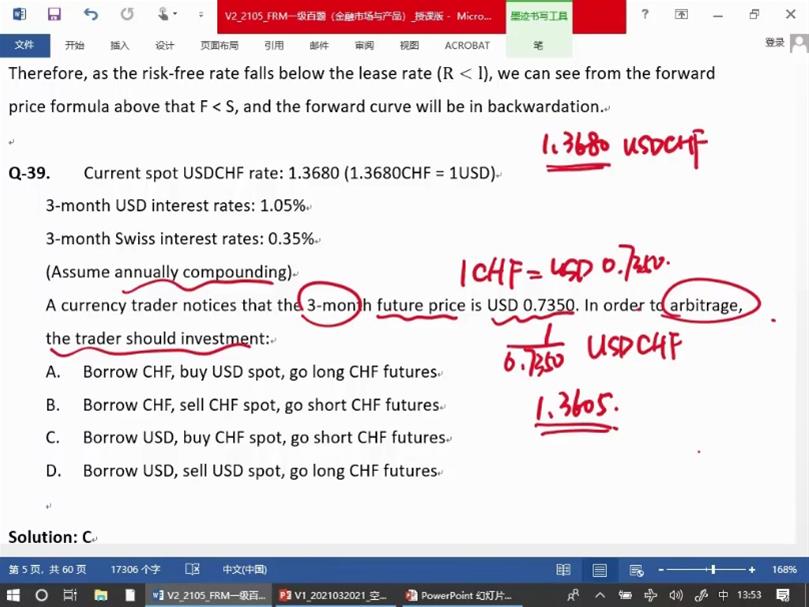 V2_2105_FRM一级百题（金融市场与产品）_授课版 - Micro...
墨迹书写工具
?
文件
开始
插入
设计
页面布局
引用
邮件
审阅
视图
ACROBAT
笔
登录
Therefore, as the risk-free rate falls below the lease rate (R < l), we can see from the forward
price formula above that F < S, and the forward curve will be in backwardation.
1.3680 USDCHF
Q-39. Current spot USDCHF rate: 1.3680 (1.3680CHF = 1USD)
3-month USD interest rates: 1.05%
3-month Swiss interest rates: 0.35%
(Assume annually compounding)
1CHF = USD 0.7350.
A currency trader notices that the 3-month future price is USD 0.7350. In order to arbitrage,
the trader should investment:
1/0.7350 USDCHF
A. Borrow CHF, buy USD spot, go long CHF futures
B. Borrow CHF, sell CHF spot, go short CHF futures
1.3605.
C. Borrow USD, buy CHF spot, go short CHF futures
D. Borrow USD, sell USD spot, go long CHF futures
Solution: C
第 5 页，共 60 页
17306 个字
中文(中国)
168%
V2_2105_FRM一级百...
V1_2021032021_空...
PowerPoint 幻灯片...
中
13:53